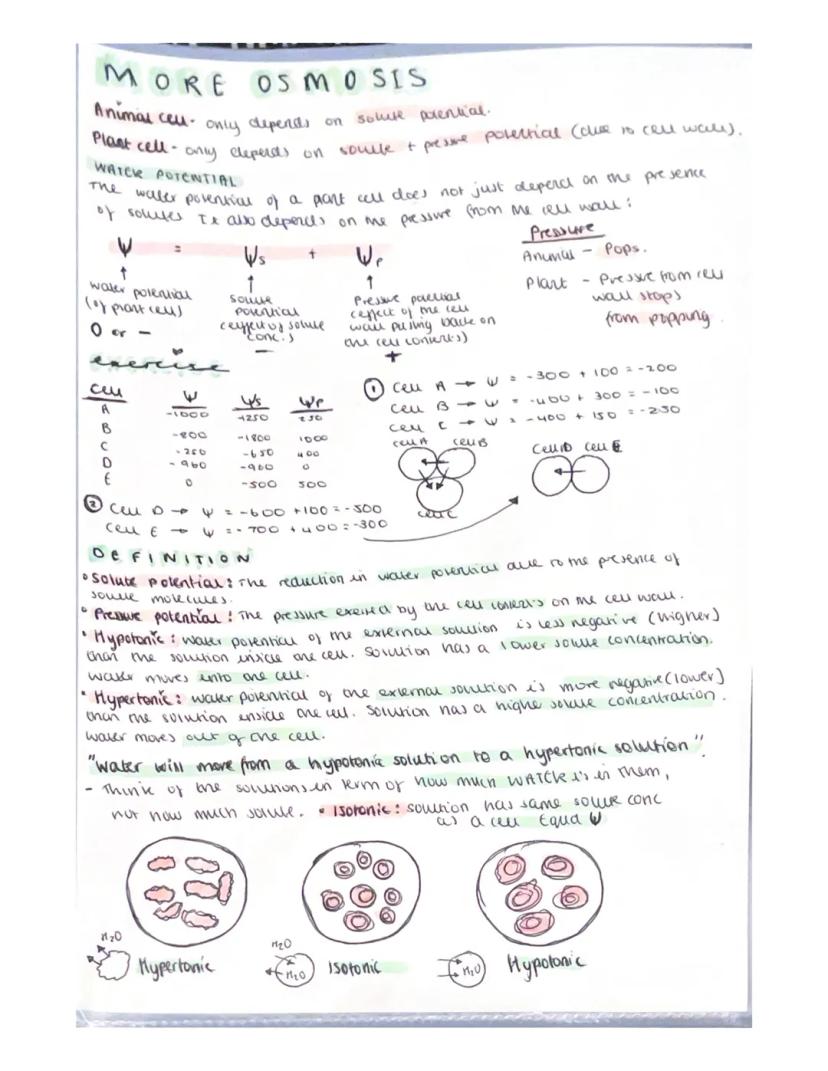 MORE OSMOSIS
Animal cell - only depends on solute potential.
Plant cell - only depends on solute + pressure potential (due to cell wall).
WATER POTENTIAL
The water potential of a plant cell does not just depend on the presence
of solutes It also depends on the pressure from the cell wall:
Ψ = Ψs + Ψp
water potential
(of plant cell)
0 or -
solute
potential
(effect of solute
conc.)
-
Pressure potential
(effect of the cell
wall pushing back on
the cell contents)
+
Pressure
Animal - Pops.
Plant - Pressure from cell
wall stops
from popping.
exercise
Cell Ψ Ψs Ψp
A -1000 -1250 250
B -800 -1800 1000
C -250 -650 400
D -960 -960 0
E 0 -500 500
① Cell A → Ψ = -300 + 100 = -200
Cell B → Ψ = -400 + 300 = -100
Cell C → Ψ = -400 + 150 = -250
Cell A Cell B
Cell C
Cell D Cell E
② Cell D → Ψ = -600 +100 = -500
Cell E → Ψ = -700 + 400 = -300
DEFINITION
• Solute Potential: The reduction in water potential due to the presence of
solute molecules.
• Pressure potential: The pressure exerted by the cell contents on the cell wall.
• Hypotonic: water potential of the external solution is less negative (higher)
than the solution inside the cell. Solution has a lower solute concentration.
Water moves into the cell.
• Hypertonic: water potential of the external solution is more negative (lower)
than the solution inside the cell. Solution has a higher solute concentration.
Water moves out of the cell.
"Water will move from a hypotonic solution to a hypertonic solution".
- Think of the solutions in term of how much WATER is in them,
not how much solute. • Isotonic: solution has same solute conc
as a cell Equal Ψ
H₂O
Hypertonic
H₂O
H₂O
Isotonic
H₂O
Hypotonic